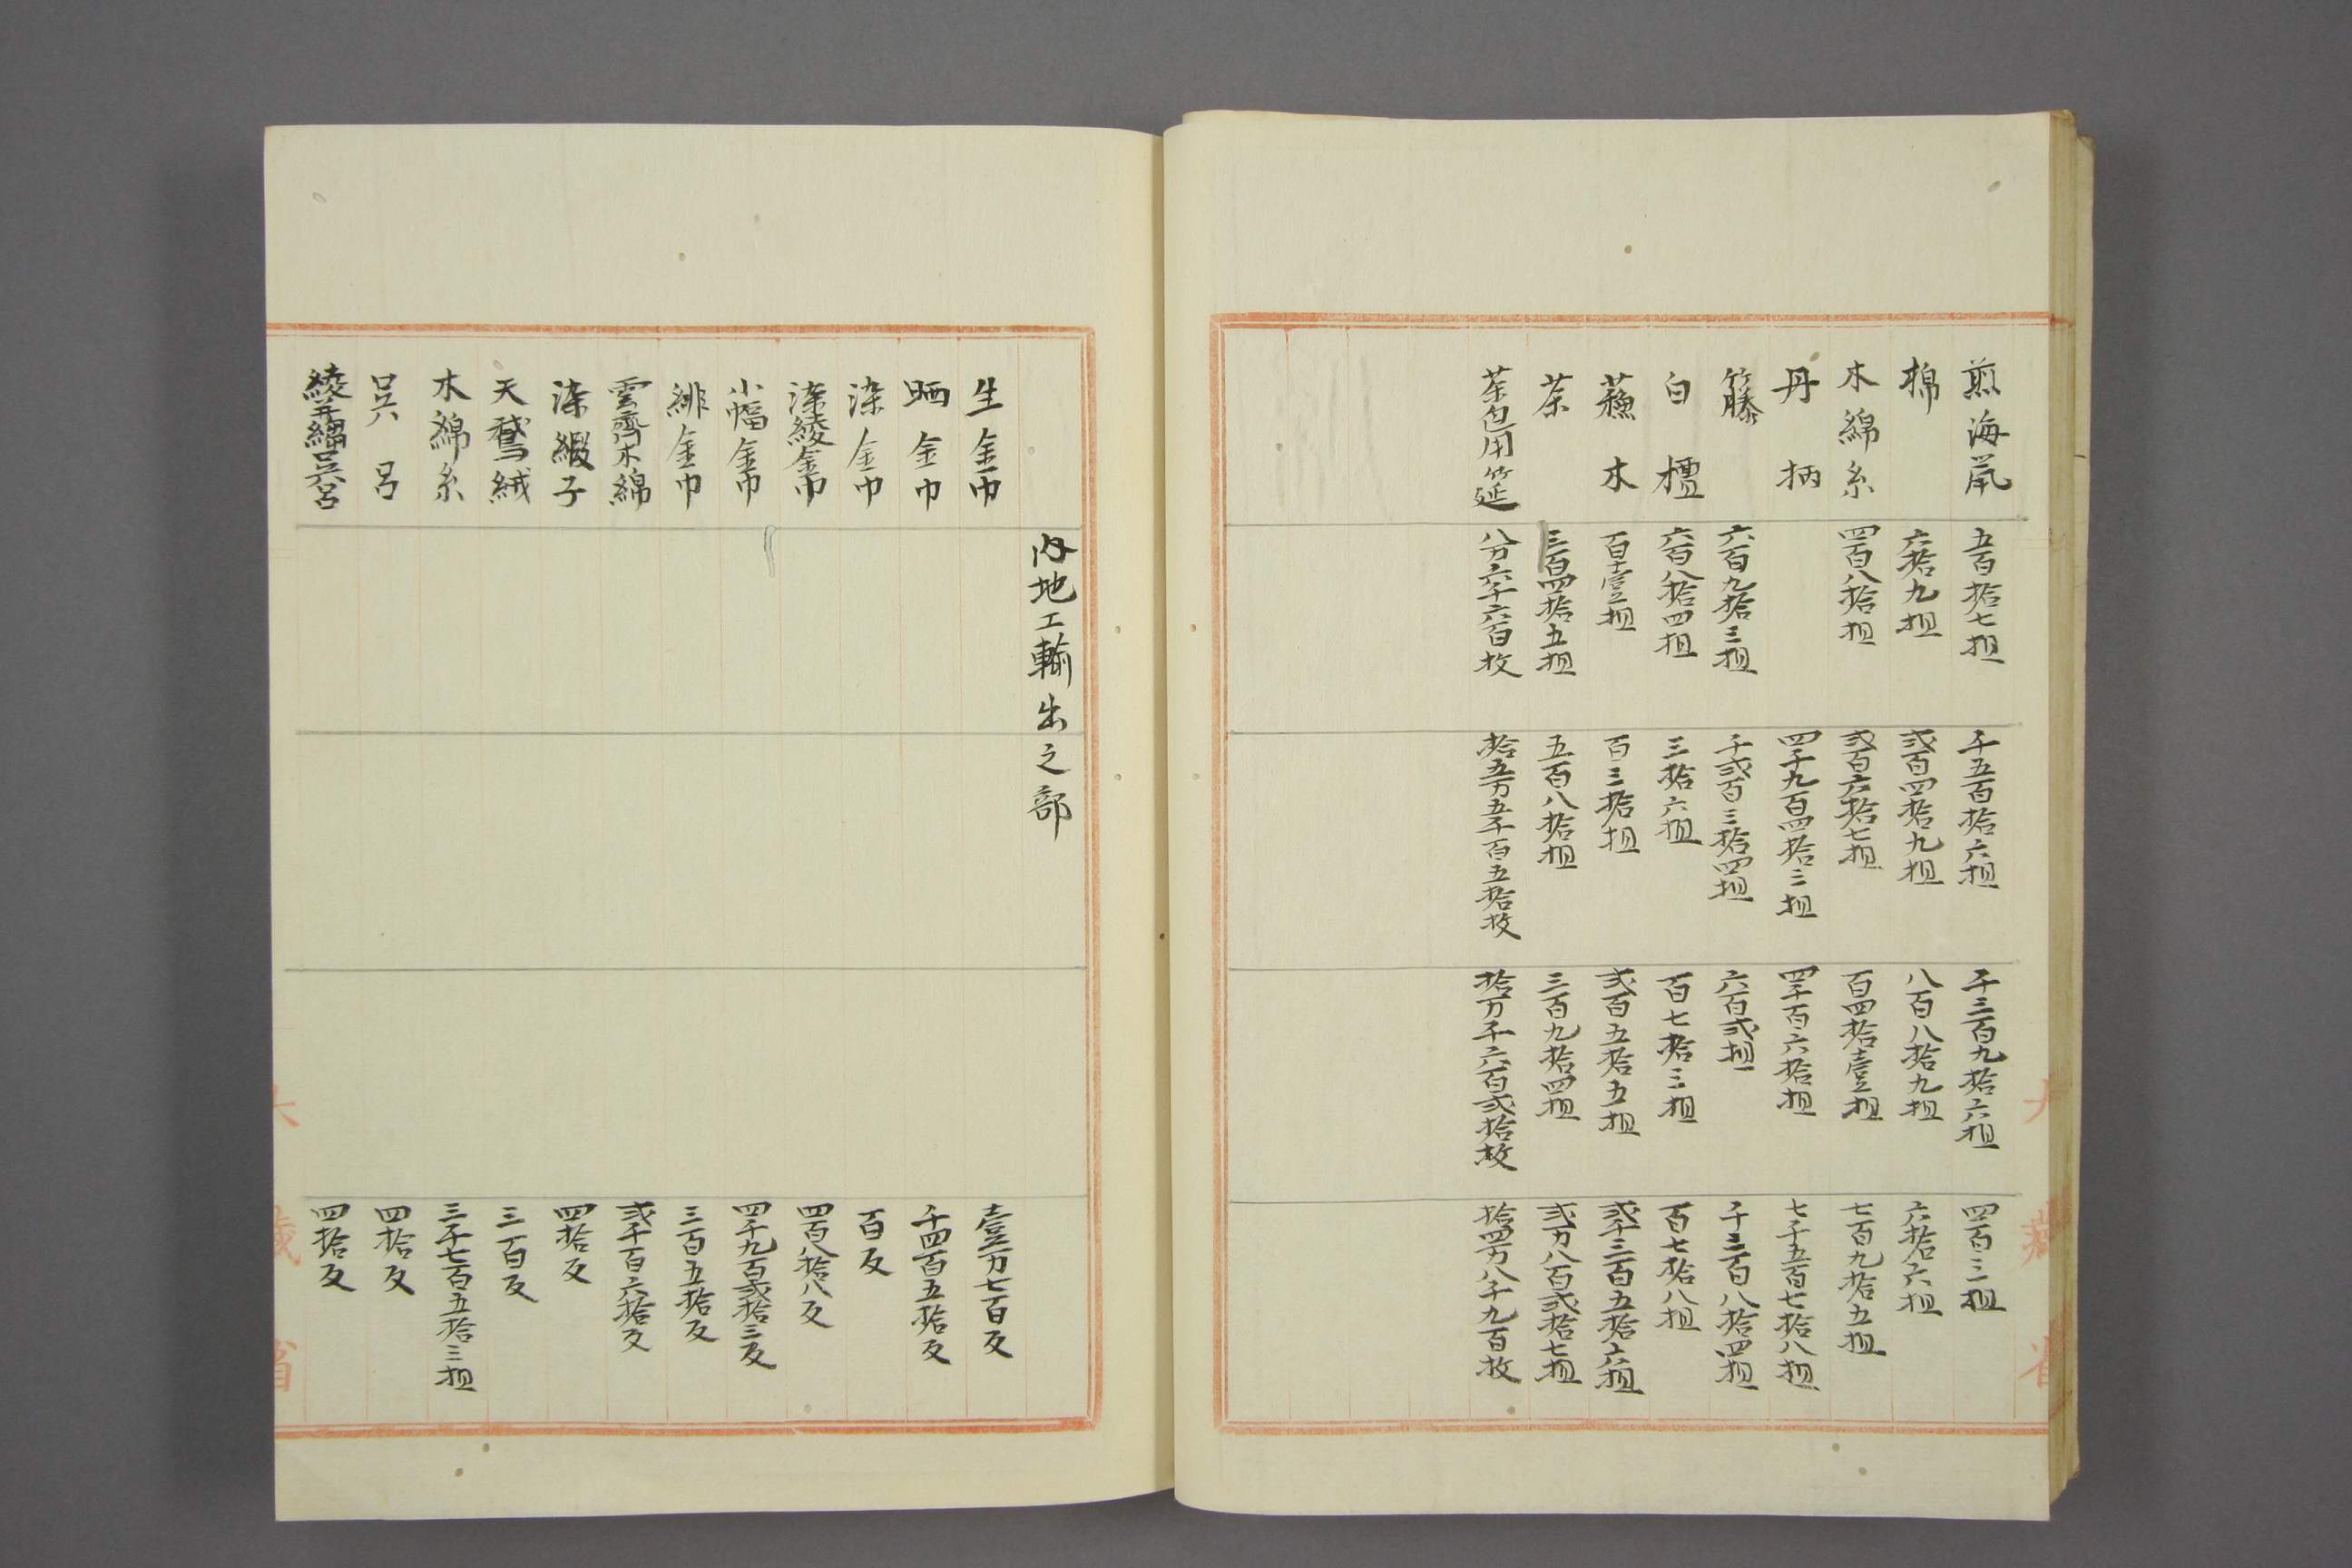 煎海鼠 五百拾七担 千五百拾六担 千三百九拾六担 四百三担
棉 六拾九担 弐百四拾九担 八百八拾九担 六拾六担
木綿糸 四百八拾担 弐百六拾七担 百四拾壹担 七百九拾五担
丹柄 四千九百四拾三担 四千百六拾担 七千五百七拾八担
籐 六百九拾三担 千弐百三拾四担 六百弐担 千三百八拾四担
白檀 六百八拾四担 三拾六担 百七拾三担 百七拾八担
蘓木 百壹担 百三拾担 弐百五拾五担 弐千三百五拾六担
茶 三百四拾五担 五百八拾担 三百九拾四担 弐万八百弐拾七担
茶包用筵 八万六千六百枚 拾五万五千百五拾枚 拾万千六百弐拾枚 拾四万八千九百枚
大藏省
内地エ輸出之部
生金巾 壹万七百反
晒金巾 千四百五拾反
染金巾 百反
染綾金巾 四百八拾八反
小幅金巾 四千九百弐拾三反
緋金巾 三百五拾反
雲齊木綿 弐千百六拾反
染緞子 四拾反
天鵞絨 三百反
木綿糸 三千七百五拾三担
呉呂 四拾反
綾呉呂 四拾反
大藏省